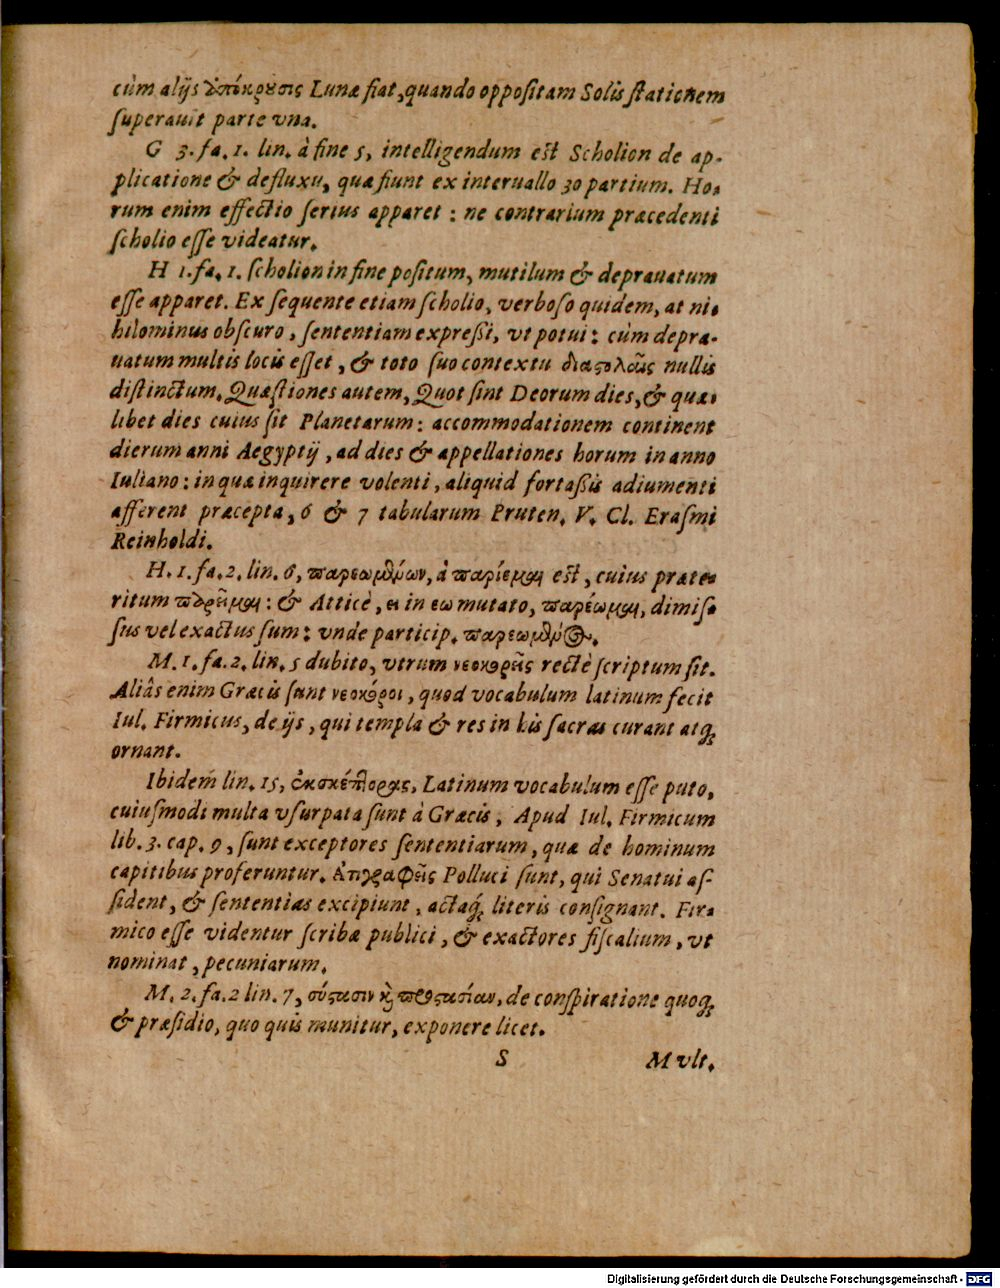 cùm alijs ἀπόκρουσις Lunæ fiat, quando oppositam Solis stationem
superauit parte vna.
G 3. fa. 1. lin. à fine 5, intelligendum est Scholion de ap-
plicatione & defluxu, quæ fiunt ex interuallo 30 partium. Ho-
rum enim effectio serius apparet: ne contrarium præcedenti
scholio esse videatur.
H 1. fa. 1. scholion in fine positum, mutilum & deprauatum
esse apparet. Ex sequente etiam scholio, verboso quidem, at ni-
hilominus obscuro, sententiam expreßi, vt potui: cùm depra-
uatum multis locis esset, & toto suo contextu διαστολαῖς nullis
distinctum. Quæstiones autem, Quot sint Deorum dies, & quæ-
libet dies cuius sit Planetarum: accommodationem continent
dierum anni Aegyptij, ad dies & appellationes horum in anno
Iuliano: in qua inquirere volenti, aliquid fortaßis adiumenti
afferent præcepta, 6 & 7 tabularum Pruten. V. Cl. Erasmi
Reinholdi.
H. 1. fa. 2. lin. 6, παρεωμένων, à παρίεμαι est, cuius præte-
ritum παρεῖμαι: & Atticè, ει in εω mutato, παρέωμαι, dimis-
sus vel exactus sum: vnde particip. παρεωμένος.
M. 1. fa. 2. lin. 5 dubito, vtrum νεοκορεῖς rectè scriptum sit.
Aliâs enim Græcis sunt νεοκόροι, quod vocabulum latinum fecit
Iul. Firmicus, de ijs, qui templa & res in his sacras curant atq;
ornant.
Ibidem lin. 15, ἐκσκέπτορας, Latinum vocabulum esse puto,
cuiusmodi multa vsurpata sunt à Græcis, Apud Iul. Firmicum
lib. 3. cap. 9, sunt exceptores sententiarum, quæ de hominum
capitibus proferuntur. Ἀπογραφεῖς Polluci sunt, qui Senatui as-
sident, & sententias excipiunt, actaq; literis consignant. Fir-
mico esse videntur scribæ publici, & exactores fiscalium, vt
nominat, pecuniarum.
M. 2. fa. 2 lin. 7, σύστασιν καὶ προστασίαν, de conspiratione quoq;
& præsidio, quo quis munitur, exponere licet.
S Mvlt.
Digitalisierung gefördert durch die Deutsche Forschungsgemeinschaft - DFG